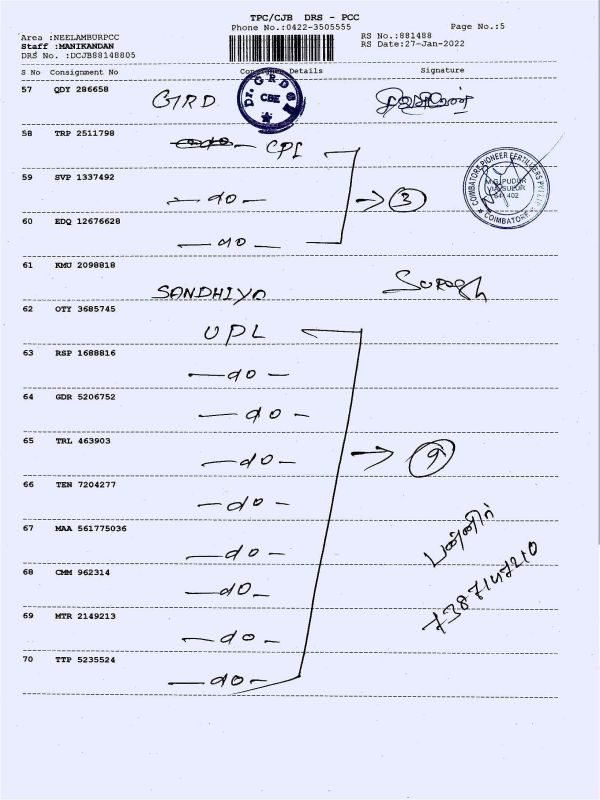 TPC/CJB DRS - PCC
Phone No.:0422-3505555
Page No.:5
Area :NEELAMBURPCC
Staff :MANIKANDAN
DRS No. :DCJB88148805
RS No.:881488
RS Date:27-Jan-2022
S No Consignment No Consignee Details Signature
57 QDY 286658
GRD
Dr. G R D
CBE
58 TRP 2511798
CPL
59 SVP 1337492
—do—
60 EDQ 12676628
—do—
→ 3
COIMBATORE PIONEER FERTILIZERS PVT LTD
M.G. PUDUR
VIA SULUR
641 402
COIMBATORE
61 KMU 2098818
SANDHIYA
Suresh
62 OTY 3685745
UPL
63 RSP 1688816
—do—
64 GDR 5206752
—do—
65 TRL 463903
—do—
→ 9
66 TEN 7204277
—do—
67 MAA 561775036
—do—
பன்னீர்
7387147210
68 CMM 962314
—do—
69 MTR 2149213
—do—
70 TTP 5235524
—do—